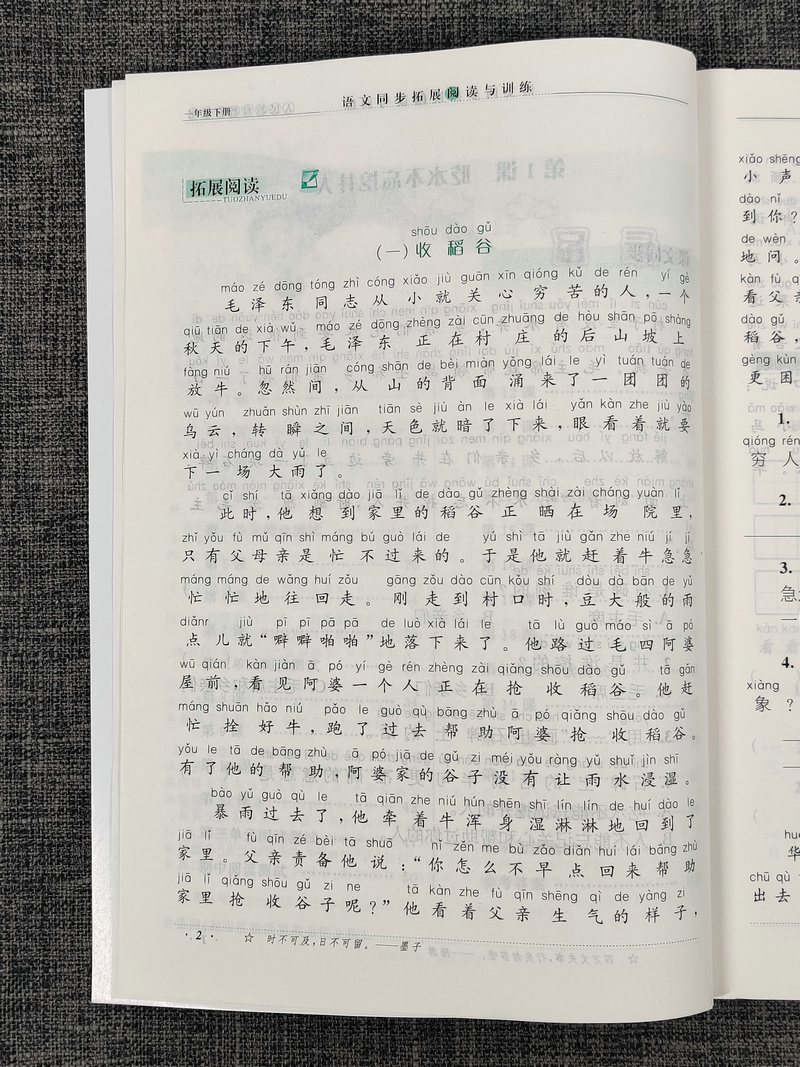 语文同步拓展阅读与训练
一年级下册
拓展阅读
TUOZHANYUEDU
shōu dào gǔ
（一）收稻谷
máo zé dōng tóng zhì cóng xiǎo jiù guān xīn qióng kǔ de rén yí gè
毛泽东同志从小就关心穷苦的人，一个
qiū tiān de xià wǔ máo zé dōng zhèng zài cūn zhuāng de hòu shān pō shàng
秋天的下午，毛泽东正在村庄的后山坡上
fàng niú hū rán jiān cóng shān de bèi miàn yǒng lái le yì tuán tuán de
放牛。忽然间，从山的背面涌来了一团团的
wū yún zhuǎn shùn zhī jiān tiān sè jiù àn le xià lái yǎn kàn zhe jiù yào
乌云，转瞬之间，天色就暗了下来，眼看着就要
xià yì cháng dà yǔ le
下一场大雨了。
cǐ shí tā xiǎng dào jiā lǐ de dào gǔ zhèng shài zài cháng yuàn lǐ
此时，他想到家里的稻谷正晒在场院里，
zhǐ yǒu fù mǔ qīn shì máng bú guò lái de yú shì tā jiù gǎn zhe niú jí jí
只有父母亲是忙不过来的。于是他就赶着牛急急
máng máng de wǎng huí zǒu gāng zǒu dào cūn kǒu shí dòu dà bān de yǔ
忙忙地往回走。刚走到村口时，豆大般的雨
diǎnr jiù pī pī pā pā de luò xià lái le tā lù guò máo sì ā pó
点儿就“噼噼啪啪”地落下来了。他路过毛四阿婆
wū qián kàn jiàn ā pó yí gè rén zhèng zài qiǎng shōu dào gǔ tā gǎn
屋前，看见阿婆一个人正在抢收稻谷。他赶
máng shuān hǎo niú pǎo le guò qù bāng zhù ā pó qiǎng shōu dào gǔ
忙拴好牛，跑了过去帮助阿婆抢收稻谷。
yǒu le tā de bāng zhù ā pó jiā de gǔ zi méi yǒu ràng yǔ shuǐ jìn shī
有了他的帮助，阿婆家的谷子没有让雨水浸湿。
bào yǔ guò qù le tā qiān zhe niú hún shēn shī lín lín de huí dào le
暴雨过去了，他牵着牛浑身湿淋淋地回到了
jiā lǐ fù qīn zé bèi tā shuō nǐ zěn me bù zǎo diǎn huí lái bāng zhù
家里。父亲责备他说：“你怎么不早点回来帮助
jiā lǐ qiǎng shōu gǔ zi ne tā kàn zhe fù qīn shēng qì de yàng zi
家里抢收谷子呢？”他看着父亲生气的样子，
·2· ☆ 时不可及，日不可留。——墨子
xiǎo shēng
小声
dào nǐ
到你？
de wèn
地问。
kàn fù
看父
dào gǔ
稻谷，
gèng kùn
更困
1.
qióng rén
穷人
2.
3.
急
4.
xiàng
象？
华
chū qù
出去